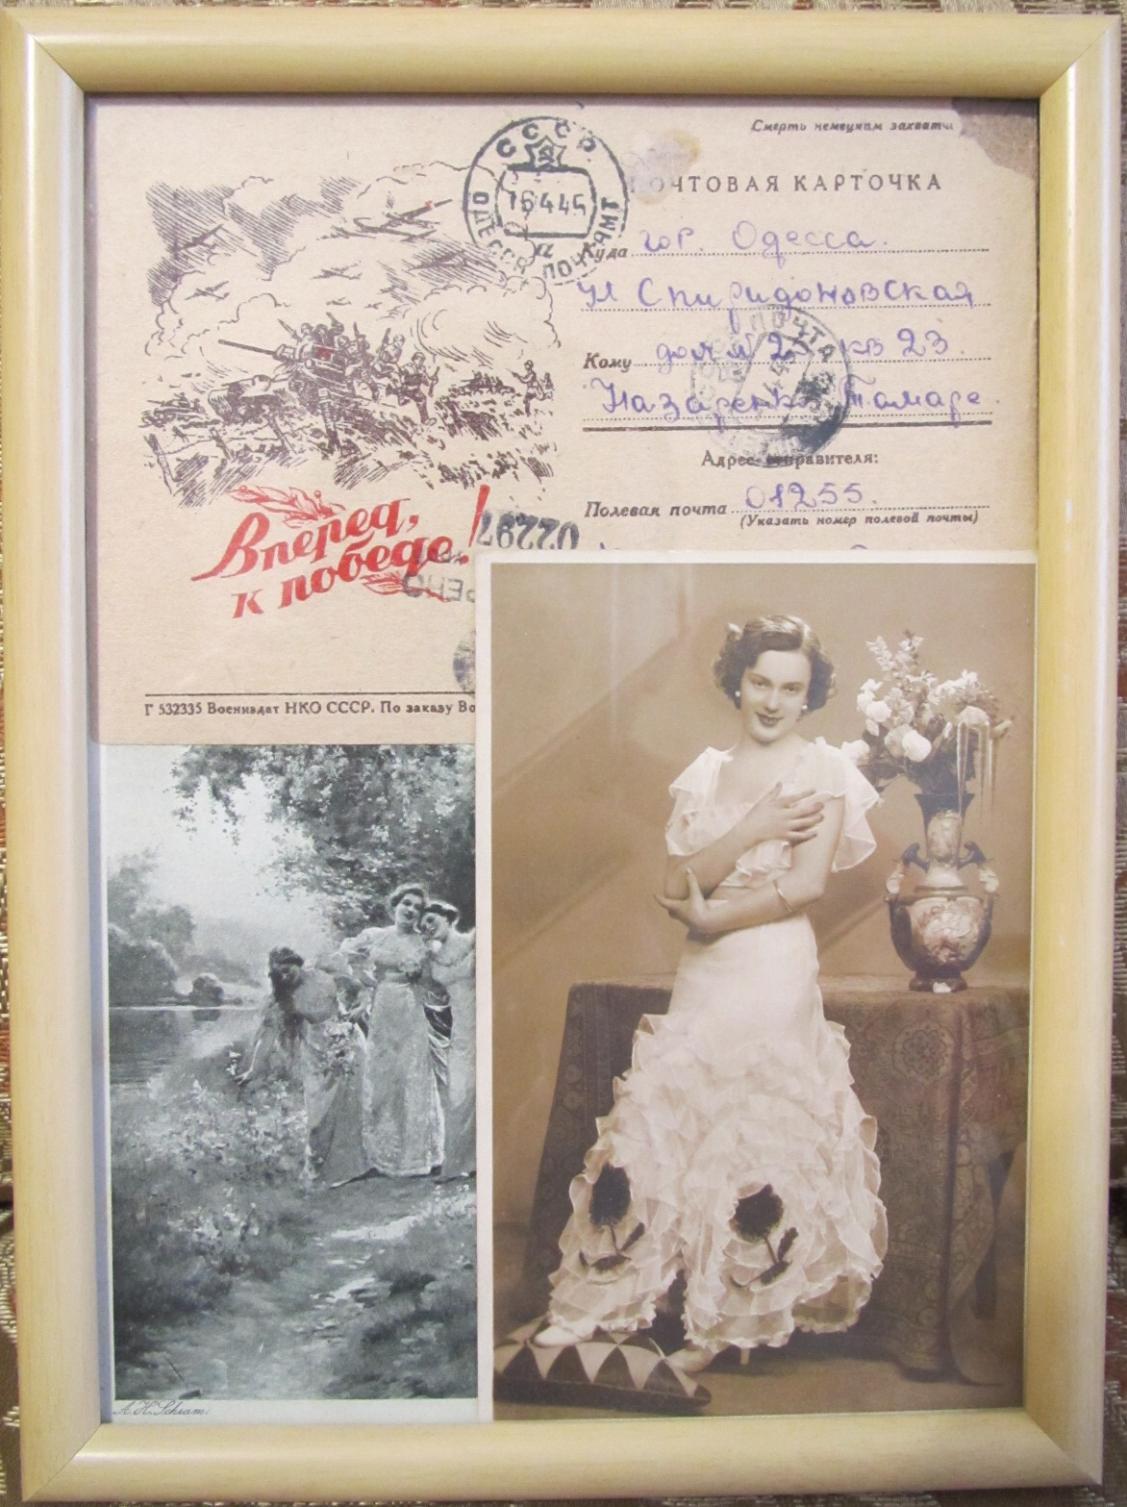 Смерть немецким захватчи
СССР
16.4.45
ОДЕССА ПОЧТАМТ
ПОЧТОВАЯ КАРТОЧКА
Куда гор. Одесса.
ул Спиридоновская
Кому дом № 23 кв 23.
Назаренко Тамаре.
ПОЧТА
Адрес отправителя:
Полевая почта 01255.
(Указать номер полевой почты)
Вперед,
к победе!
02297
Г 532335 Воениздат НКО СССР. По заказу Во
A. H. Schram.